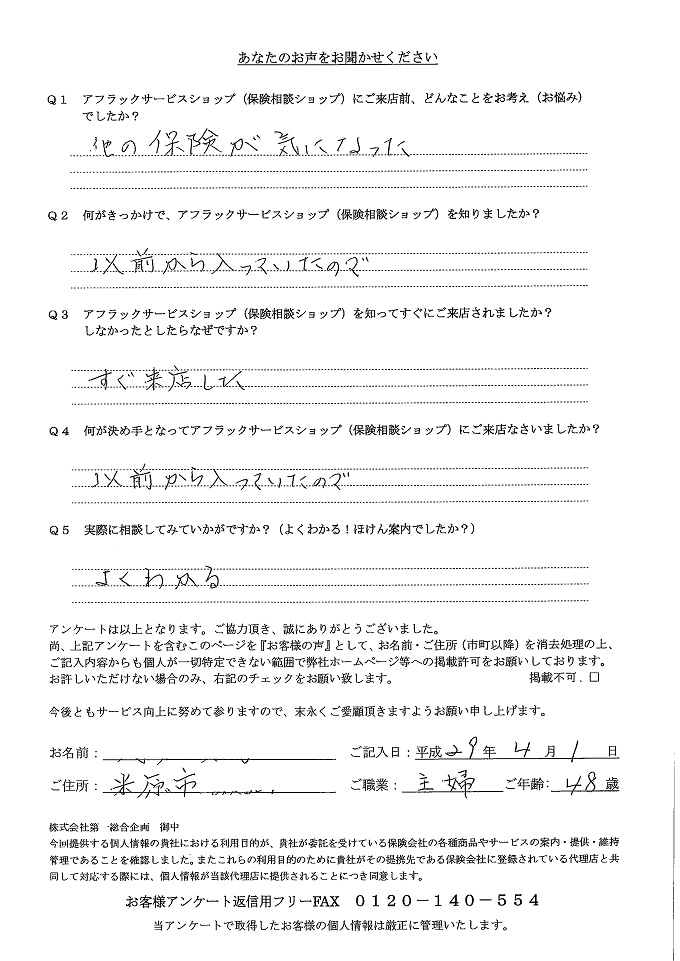 あなたのお声をお聞かせください
Q1 アフラックサービスショップ（保険相談ショップ）にご来店前、どんなことをお考え（お悩み）
でしたか？
他の保険が気になった
Q2 何がきっかけで、アフラックサービスショップ（保険相談ショップ）を知りましたか？
以前から入っていたので
Q3 アフラックサービスショップ（保険相談ショップ）を知ってすぐにご来店されましたか？
しなかったとしたらなぜですか？
すぐ来店した
Q4 何が決め手となってアフラックサービスショップ（保険相談ショップ）にご来店なさいましたか？
以前から入っていたので
Q5 実際に相談してみていかがですか？（よくわかる！ほけん案内でしたか？）
よくわかる
アンケートは以上となります。ご協力頂き、誠にありがとうございました。
尚、上記アンケートを含むこのページを『お客様の声』として、お名前・ご住所（市町以降）を消去処理の上、
ご記入内容からも個人が一切特定できない範囲で弊社ホームページ等への掲載許可をお願いしております。
お許しいただけない場合のみ、右記のチェックをお願い致します。 掲載不可．□
今後ともサービス向上に努めて参りますので、末永くご愛顧頂きますようお願い申し上げます。
お名前： ご記入日：平成29年 4月 1日
ご住所：米原市 ご職業：主婦 ご年齢：48歳
株式会社第一総合企画 御中
今回提供する個人情報の貴社における利用目的が、貴社が委託を受けている保険会社の各種商品やサービスの案内・提供・維持
管理であることを確認しました。またこれらの利用目的のために貴社がその提携先である保険会社に登録されている代理店と共
同して対応する際には、個人情報が当該代理店に提供されることにつき同意します。
お客様アンケート返信用フリーFAX 0120－140－554
当アンケートで取得したお客様の個人情報は厳正に管理いたします。